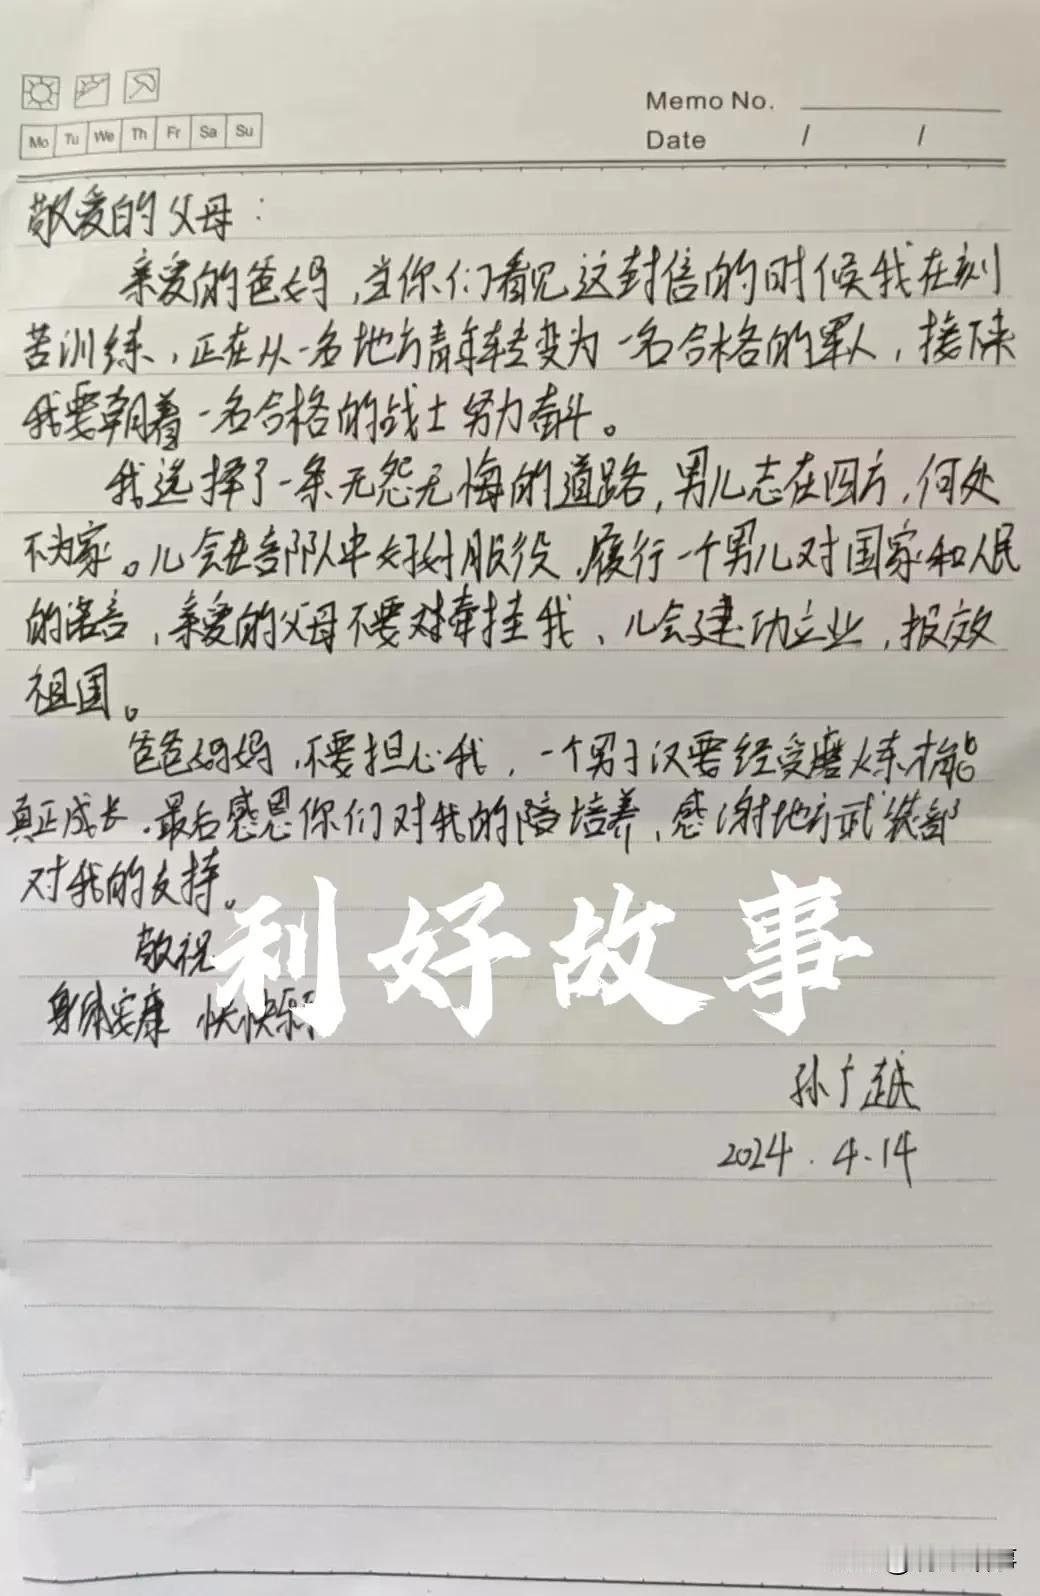 Memo No.
Mo Tu We Th Fr Sa Su
Date / /
敬爱的父母：
亲爱的爸妈，当你们看见这封信的时候我在刻
苦训练，正在从一名地方青年转变为一名合格的军人，接下来
我要朝着一名合格的战士努力奋斗。
我选择了一条无怨无悔的道路，男儿志在四方，何处
不为家。儿会在部队中好好服役，履行一个男儿对国家和人民
的诺言，亲爱的父母不要对牵挂我、儿会建功立业，报效
祖国。
爸爸妈妈，不要担心我，一个男子汉要经受磨炼才能
真正成长，最后感恩你们对我的陪培养，感谢地方武装部
对我的支持。
敬祝
身体安康 快快乐乐
利好故事
孙广越
2024.4.14